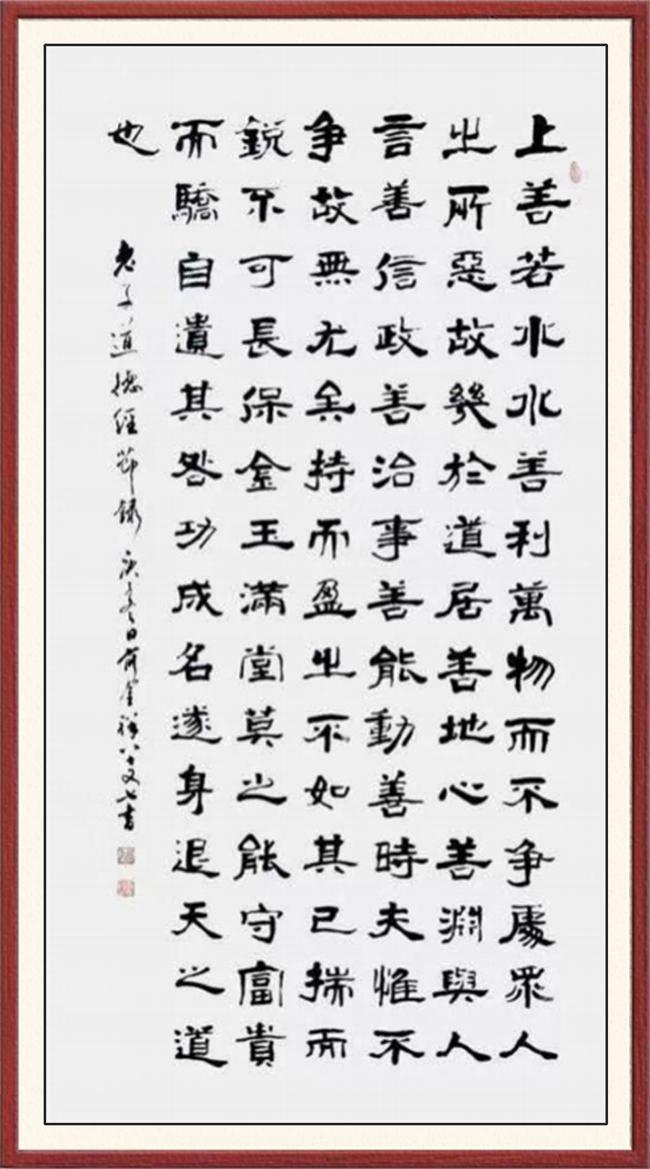 上善若水水善利萬物而不争處衆人
之所惡故幾於道居善地心善淵與人
言善信政善治事善能動善時夫惟不
争故無尤矣持而盈之不如其已揣而
鋭不可長保金玉滿堂莫之能守富貴
而驕自遺其咎功成名遂身退天之道
也
老子道德經節錄 冬日 金祥八十又七書